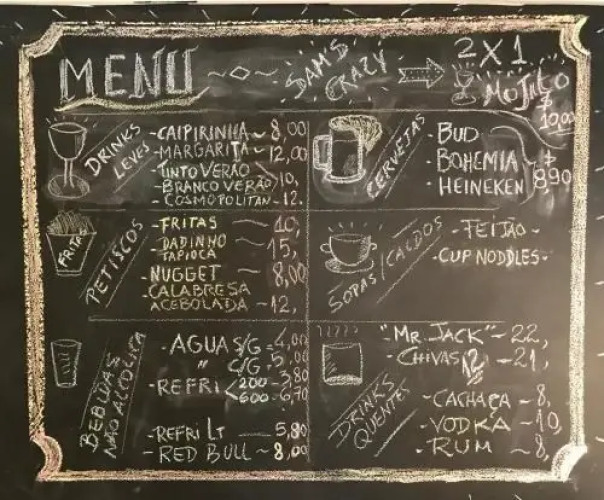 MENU ~o~ SAM'S CRAZY 2X1
MOJITO
$
10,00
DRINKS LEVES
-CAIPIRINHA ~ 8,00
-MARGARITA ~ 12,00
-TINTO VERÃO
-BRANCO VERÃO 10,
-COSMOPOLITAN -12.
CERVEJAS
-BUD
-BOHEMIA
-HEINEKEN 8,90
FRITAS
PETISCOS
-FRITAS - 10,
-DADINHO TAPIOCA 15,
-NUGGET - 8,00
-CALABRESA
ACEBOLADA - 12,
SOPAS/CALDOS
-FEIJÃO-
-CUP NODDLES-
BEBIDAS NÃO ALCÓLICA
-AGUA S/G - 4,00
" C/G - 5,00
-REFRI 200 - 3,80
600 - 6,70
-REFRI LT - 5,80
-RED BULL - 8,00
DRINKS QUENTES
-"MR. JACK" - 22,
-CHIVAS 12 - 21,
-CACHAÇA - 8,
-VODKA - 10,
-RUM - 8,